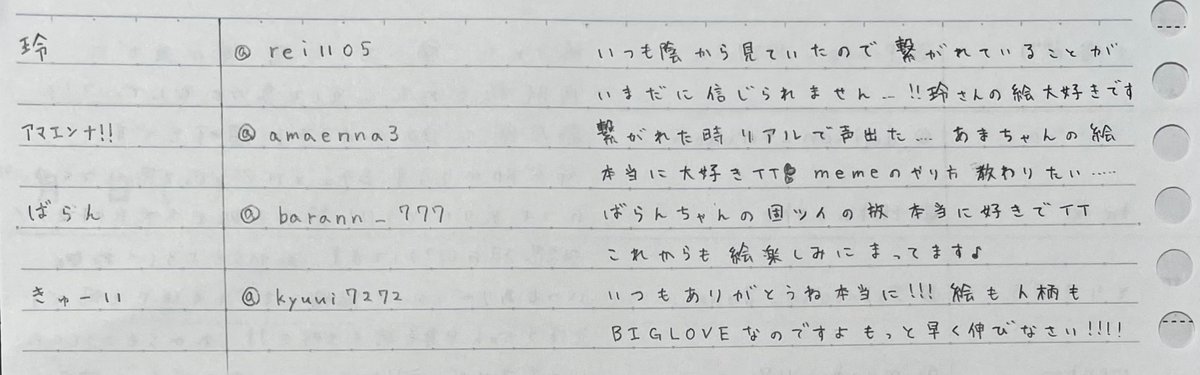 玲 @rei1105 いつも陰から見ていたので繋がれていることが
いまだに信じられません…!!玲さんの絵大好きです
アマエンナ!! @amaenna3 繋がれた時リアルで声出た…あまちゃんの絵
本当に大好きTT memeのやり方教わりたい……
ばらん @barann_777 ばらんちゃんの固ツイの 本当に好きでTT
これからも絵楽しみにまってます♪
きゅーい @kyuui7272 いつもありがとうね本当に!!! 絵も人柄も
BIGLOVEなのですよもっと早く伸びなさい!!!!